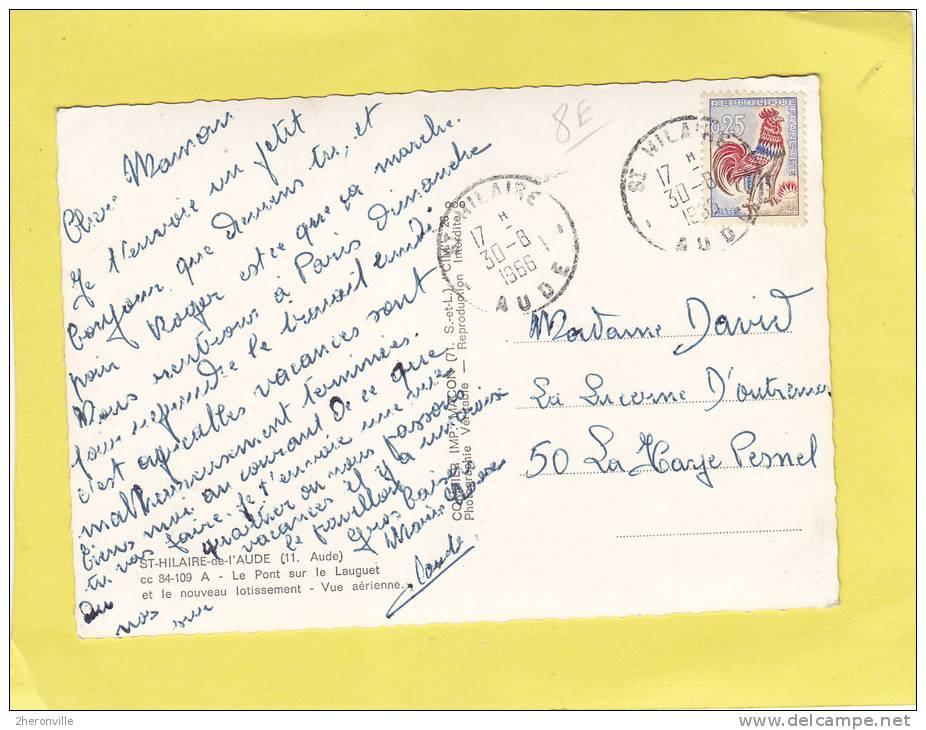 Chère Maman
Je t'envoie un petit
bonjour que deviens tu, et
pour Roger est ce que ça marche.
Nous rentrons à Paris Dimanche
pour reprendre le travail Lundi
c'est agréables vacances sont
malheureusement terminées.
Tiens moi au courant de ce que
tu vas faire. Je t'envoie une vue
du quartier ou nous passons
nos vacances il y a un croix
sur le pavillon
Gros baisers
Marie
Claude
8E
REPUBLIQUE FRANCAISE
0,25
ST HILAIRE
17 H
30-8
1966
AUDE
ST HILAIRE
17 H
30-8
1966
AUDE
Madame David
La Lucerne D'outremer
50 La Haye Pesnel
COMBIER IMP. MACON (71. S.-et-L.) - CIM
Photographie Véritable — Reproduction Interdite
ST-HILAIRE-de-l'AUDE (11. Aude)
cc 84-109 A - Le Pont sur le Lauguet
et le nouveau lotissement - Vue aérienne.
2heronville
www.delcampe.net